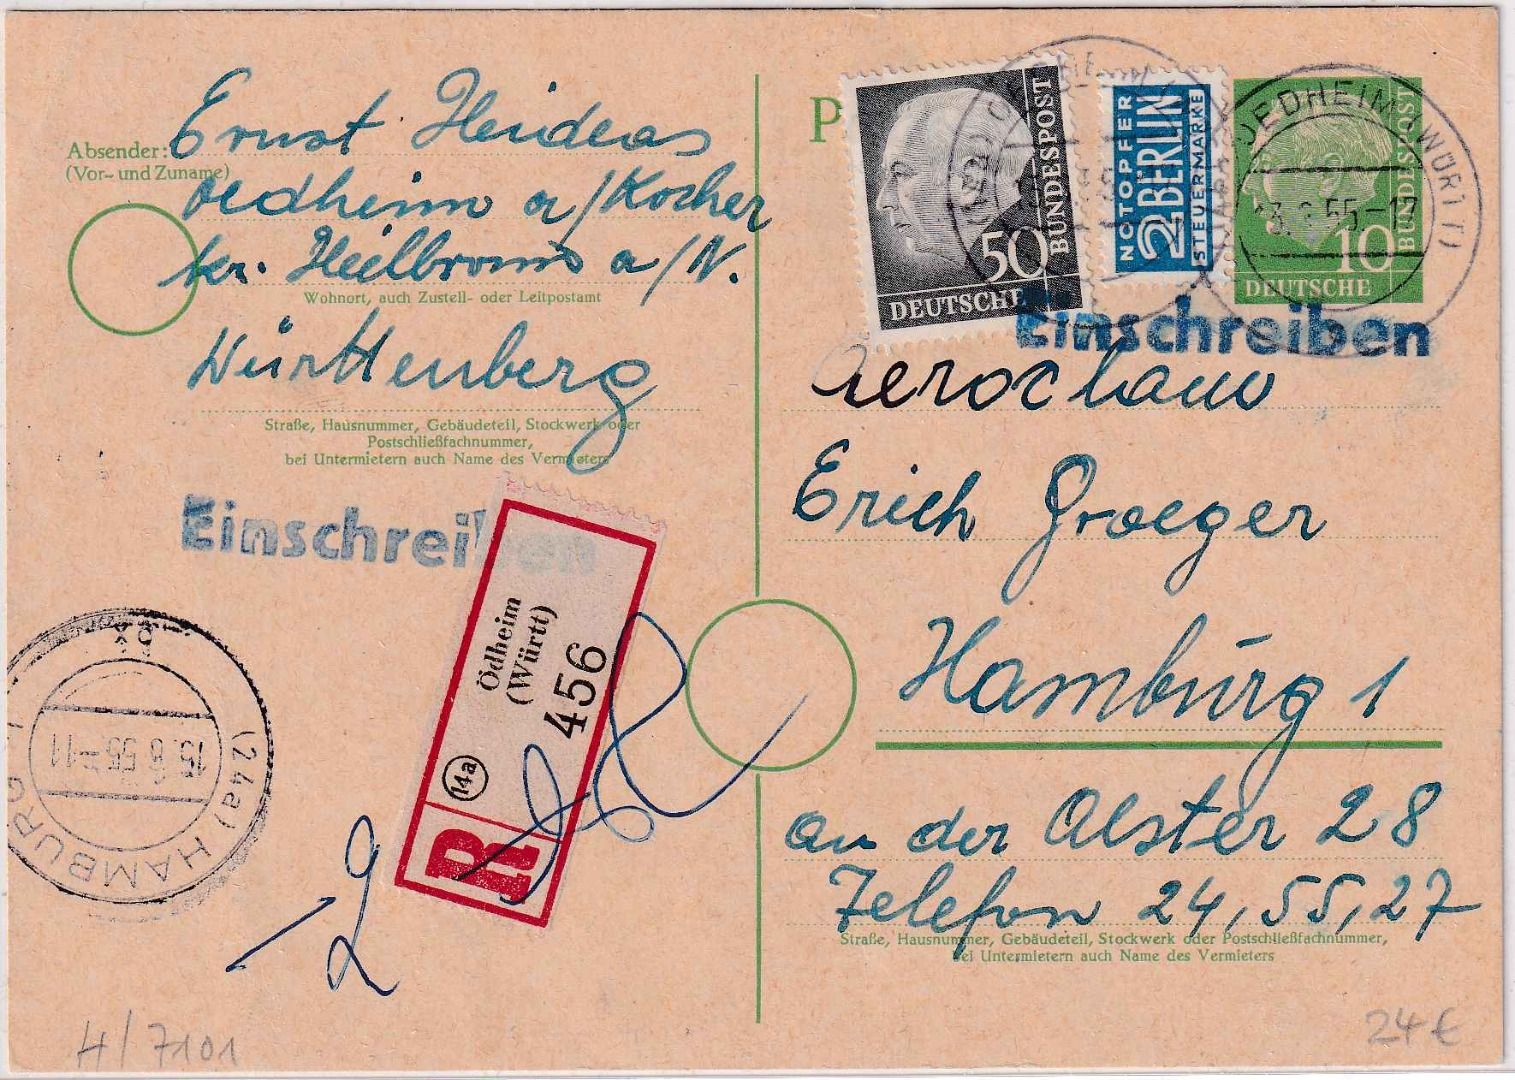 Absender:
(Vor- und Zuname)
Ernst Heideas
Oedheim a/Kocher
kr. Heilbronn a/N.
Wohnort, auch Zustell- oder Leitpostamt
Württenberg
Straße, Hausnummer, Gebäudeteil, Stockwerk oder
Postschließfachnummer,
bei Untermietern auch Name des Vermieters
Einschreiben
Ödheim
(Württ)
456
14a
R
(24a) HAMBURG 1
15.8.55-11
2
H/7101
P
50
DEUTSCHE
BUNDESPOST
NOTOPFER
2 BERLIN
STEUERMARKE
10
DEUTSCHE
BUNDESPOST
OEDHEIM (WÜRTT)
Einschreiben
Erich Graeger
Hamburg 1
an der Alster 28
Telefon 24,55,27
Straße, Hausnummer, Gebäudeteil, Stockwerk oder Postschließfachnummer,
bei Untermietern auch Name des Vermieters
24 €